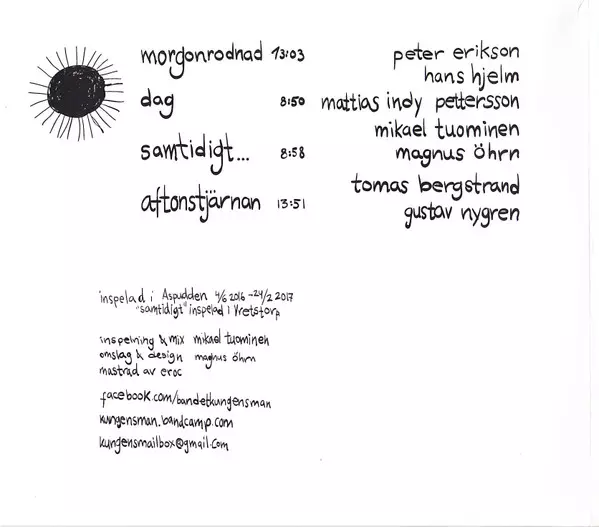 morgonrodnad 13:03
dag 8:50
samtidigt... 8:58
aftonstjärnan 13:51
peter erikson
hans hjelm
mattias indy pettersson
mikael tuominen
magnus öhrn
tomas bergstrand
gustav nygren
inspelad i Aspudden 4/6 2016 - 24/2 2017
"samtidigt" inspelad i Vretstorp
inspelning & mix mikael tuominen
omslag & design magnus öhrn
mastrad av eroc
facebook.com/bandetkungensman
kungensman.bandcamp.com
kungensmailbox@gmail.com